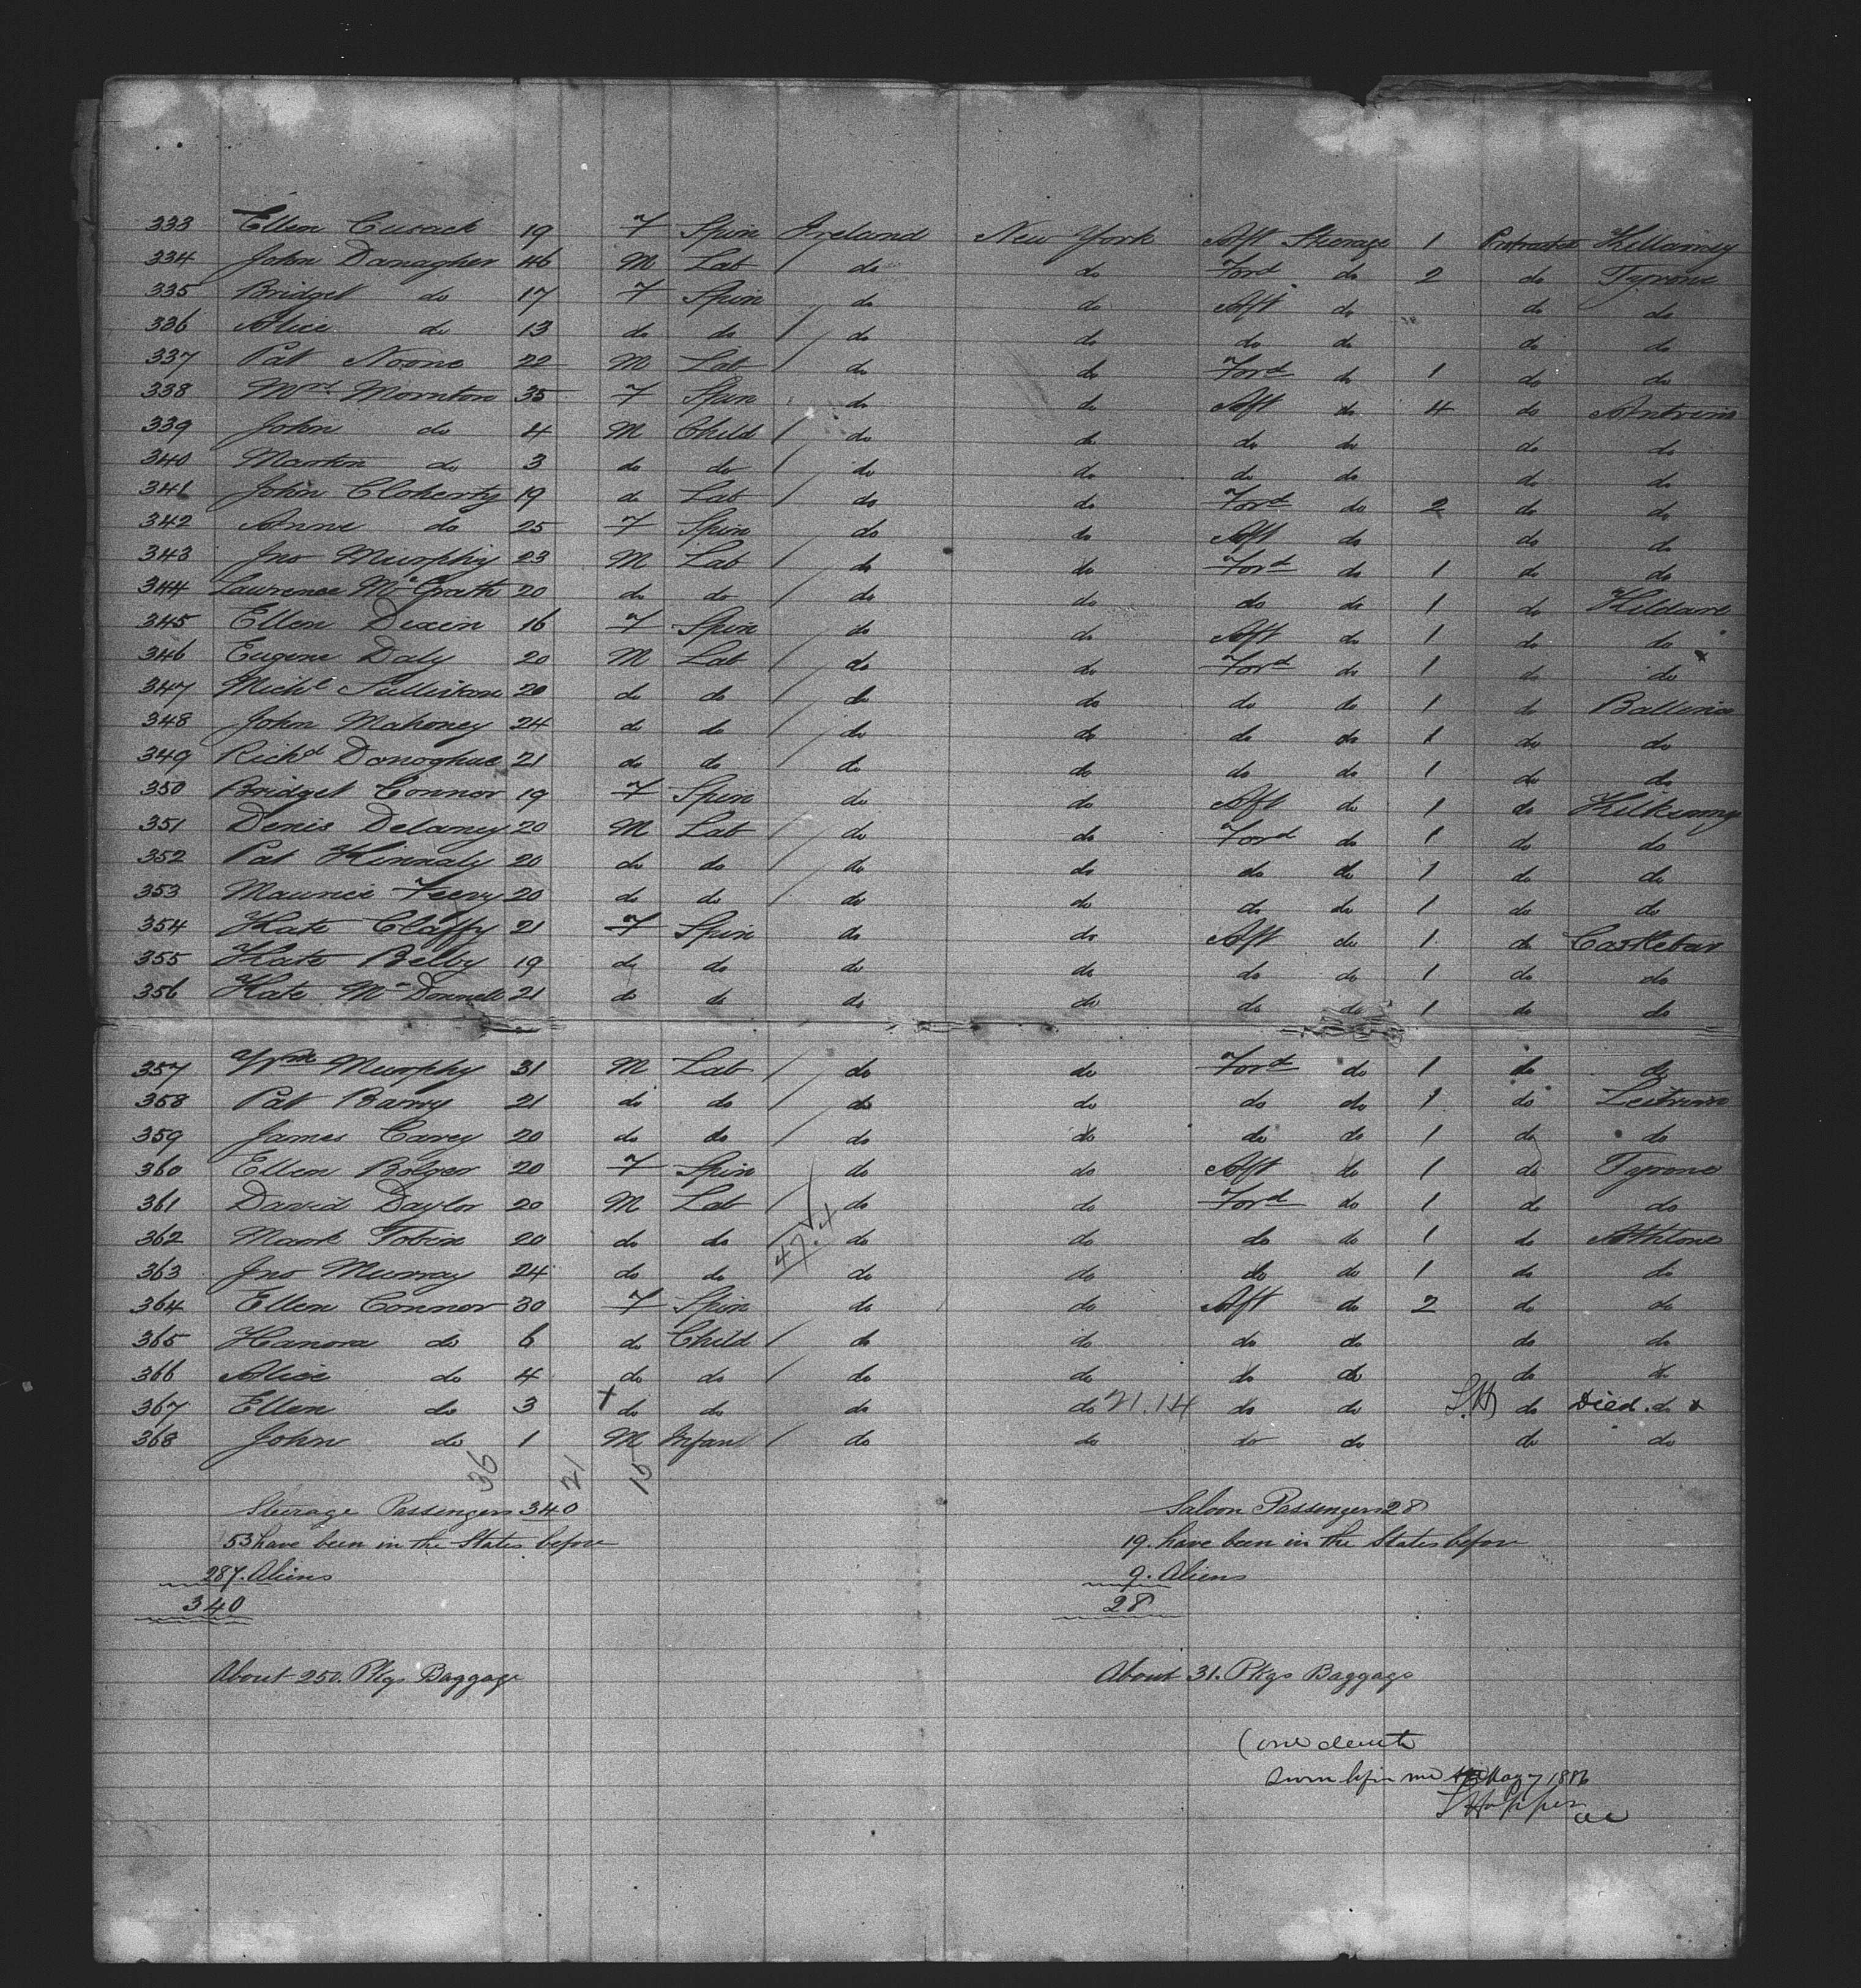 333 Ellen Cusack 19 F Spin Ireland New York Aft Steerage 1 Protracted Killarney
334 John Danagher 46 M Lab / do do Ford do 2 do Tyrone
335 Bridget do 17 F Spin do do Aft do do do
336 Alice do 13 do do / do do do do do do
337 Pat Noone 22 M Lab / do do Ford do 1 do do
338 Mrs Mornton 35 F Spin do do Aft do 4 do Antrim
339 John do 4 M Child / do do do do do do
340 Martin do 3 do do / do do do do do do
341 John Cloherty 19 do Lab / do do Ford do 2 do do
342 Anne do 25 F Spin do do Aft do do do
343 Jno Murphy 23 M Lab / do do Ford do 1 do do
344 Lawrence McGrath 20 do do / do do do do 1 do Kildare
345 Ellen Dixen 16 F Spin do do Aft do 1 do do
346 Eugene Daly 20 M Lab / do do Ford do 1 do do
347 Michl Sullivan 20 do do / do do do do 1 do Ballina
348 John Mahoney 24 do do / do do do do 1 do do
349 Richd Donoghue 21 do do / do do do do 1 do do
350 Bridget Connor 19 F Spin do do Aft do 1 do Kilkenny
351 Denis Delaney 20 M Lab / do do Ford do 1 do do
352 Pat Kinnaly 20 do do / do do do do 1 do do
353 Maurice Feery 20 do do / do do do do 1 do do
354 Kate Claffy 21 F Spin do do Aft do 1 do Castlebar
355 Kate Belby 19 do do do do do do 1 do do
356 Kate McDonnell 21 do do do do do do 1 do do
357 Wm Murphy 31 M Lab / do do Ford do 1 do do
358 Pat Barry 21 do do / do do do do 1 do Leitrim
359 James Carey 20 do do / do do do do 1 do do
360 Ellen Bolger 20 F Spin do do Aft do 1 do Tyrone
361 David Daylor 20 M Lab / do do Ford do 1 do do
362 Mark Tobin 20 do do / 47.4 do do do do 1 do Athlone
363 Jno Murray 24 do do / do do do do 1 do do
364 Ellen Connor 30 F Spin do do Aft do 2 do do
365 Hanora do 6 do Child / do do do do do do
366 Alice do 4 do do / do do do do do do
367 Ellen do 3 x do do do do 21.14 do do S.H do Died. do x
368 John do 1 M Infan / do do do do do do
36 21 15
Steerage Passengers 340 Saloon Passengers 28
53 have been in the States before 19. have been in the States before
287. Aliens 9. Aliens
340 28
About 250. Pkgs Baggage About 31. Pkgs Baggage
(one death
Sworn before me May 7 1886